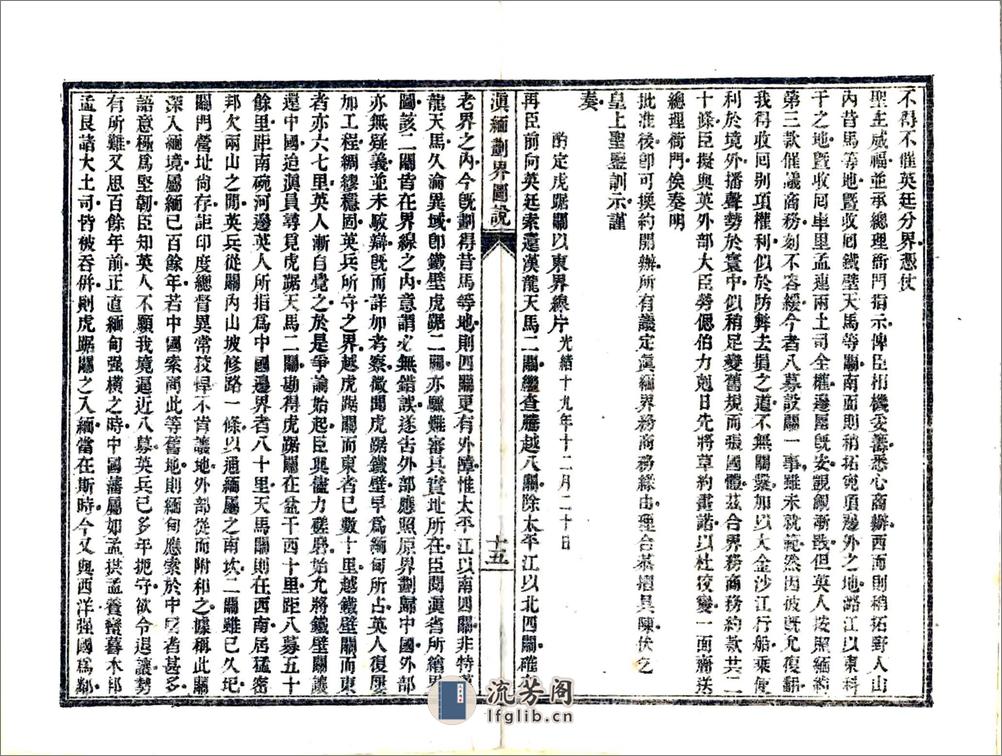 不得不催英廷分界憑仗
聖主威福並承總理衙門指示俾臣相機妥籌悉心商辦西面則稍拓野人山
內昔馬等地暨收回鐵壁天馬等關南面則稍拓宛頂邊外之地潞江以東科
干之地暨收回車里孟連兩土司全權邊圉旣安覬覦漸戢但英人按照緬約
第三款催議商務刻不容緩今者八募設關一事雖未就範然因彼旣允復翻
我得收回別項權利似於防弊去損之道不無關繫加以大金沙江行船乘便
利於境外播聲勢於寰中似稍足變舊規而張國體茲合界務商務約款共二
十條臣擬與英外部大臣勞偲伯力剋日先將草約畫諾以杜狡變一面齎送
總理衙門俟奏明
批准後卽可換約開辦所有議定滇緬界務商務緣由理合恭摺具陳伏乞
皇上聖鑒訓示謹
奏
酌定虎踞關以東界線片 光緒十九年十二月二十日
再臣前向英廷索還漢龍天馬二關繼查騰越八關除太平江以北四關確在
滇緬劃界圖說
十五
老界之內今旣劃得昔馬等地則四關更有外障惟太平江以南四關非特漢
龍天馬久淪異域卽鐵壁虎踞二關亦驟難審其實址所在臣閱滇省所繪界
圖該二關皆在界線之內意謂必無錯誤遂告外部應照原界劃歸中國外部
亦無疑義並未駁辯旣而詳加考察微聞虎踞鐵壁早爲緬甸所占英人復屢
加工程綢繆穩固英兵所守之界越虎踞關而東者已數十里越鐵壁關而東
者亦六七里英人漸自覺之於是爭論始起臣與儘力磋磨始允將鐵壁關讓
還中國迨滇員尋覓虎踞天馬二關勘得虎踞關在盆干西四十里距八募五十
餘里距南碗河邊英人所指爲中國邊界者八十里天馬關則在西南居猛密
邦欠兩山之間英兵從關內山坡修路一條以通緬屬之南坎二關雖已久圮
關門營址尚存詎印度總督異常狡悍不肯讓地外部從而附和之據稱此關
深入緬境屬緬已百餘年若中國索商此等舊地則緬甸應索於中國者甚多
語意極爲堅朝臣知英人不願我境逼近八募英兵已多年扼守欲令退讓勢
有所難又思百餘年前正直緬甸强橫之時中國藩屬如孟拱孟養蠻暮木邦
孟艮諸大土司皆被吞併則虎踞關之入緬當在斯時今又與西洋强國爲鄰
流芳阁
lfglib.cn